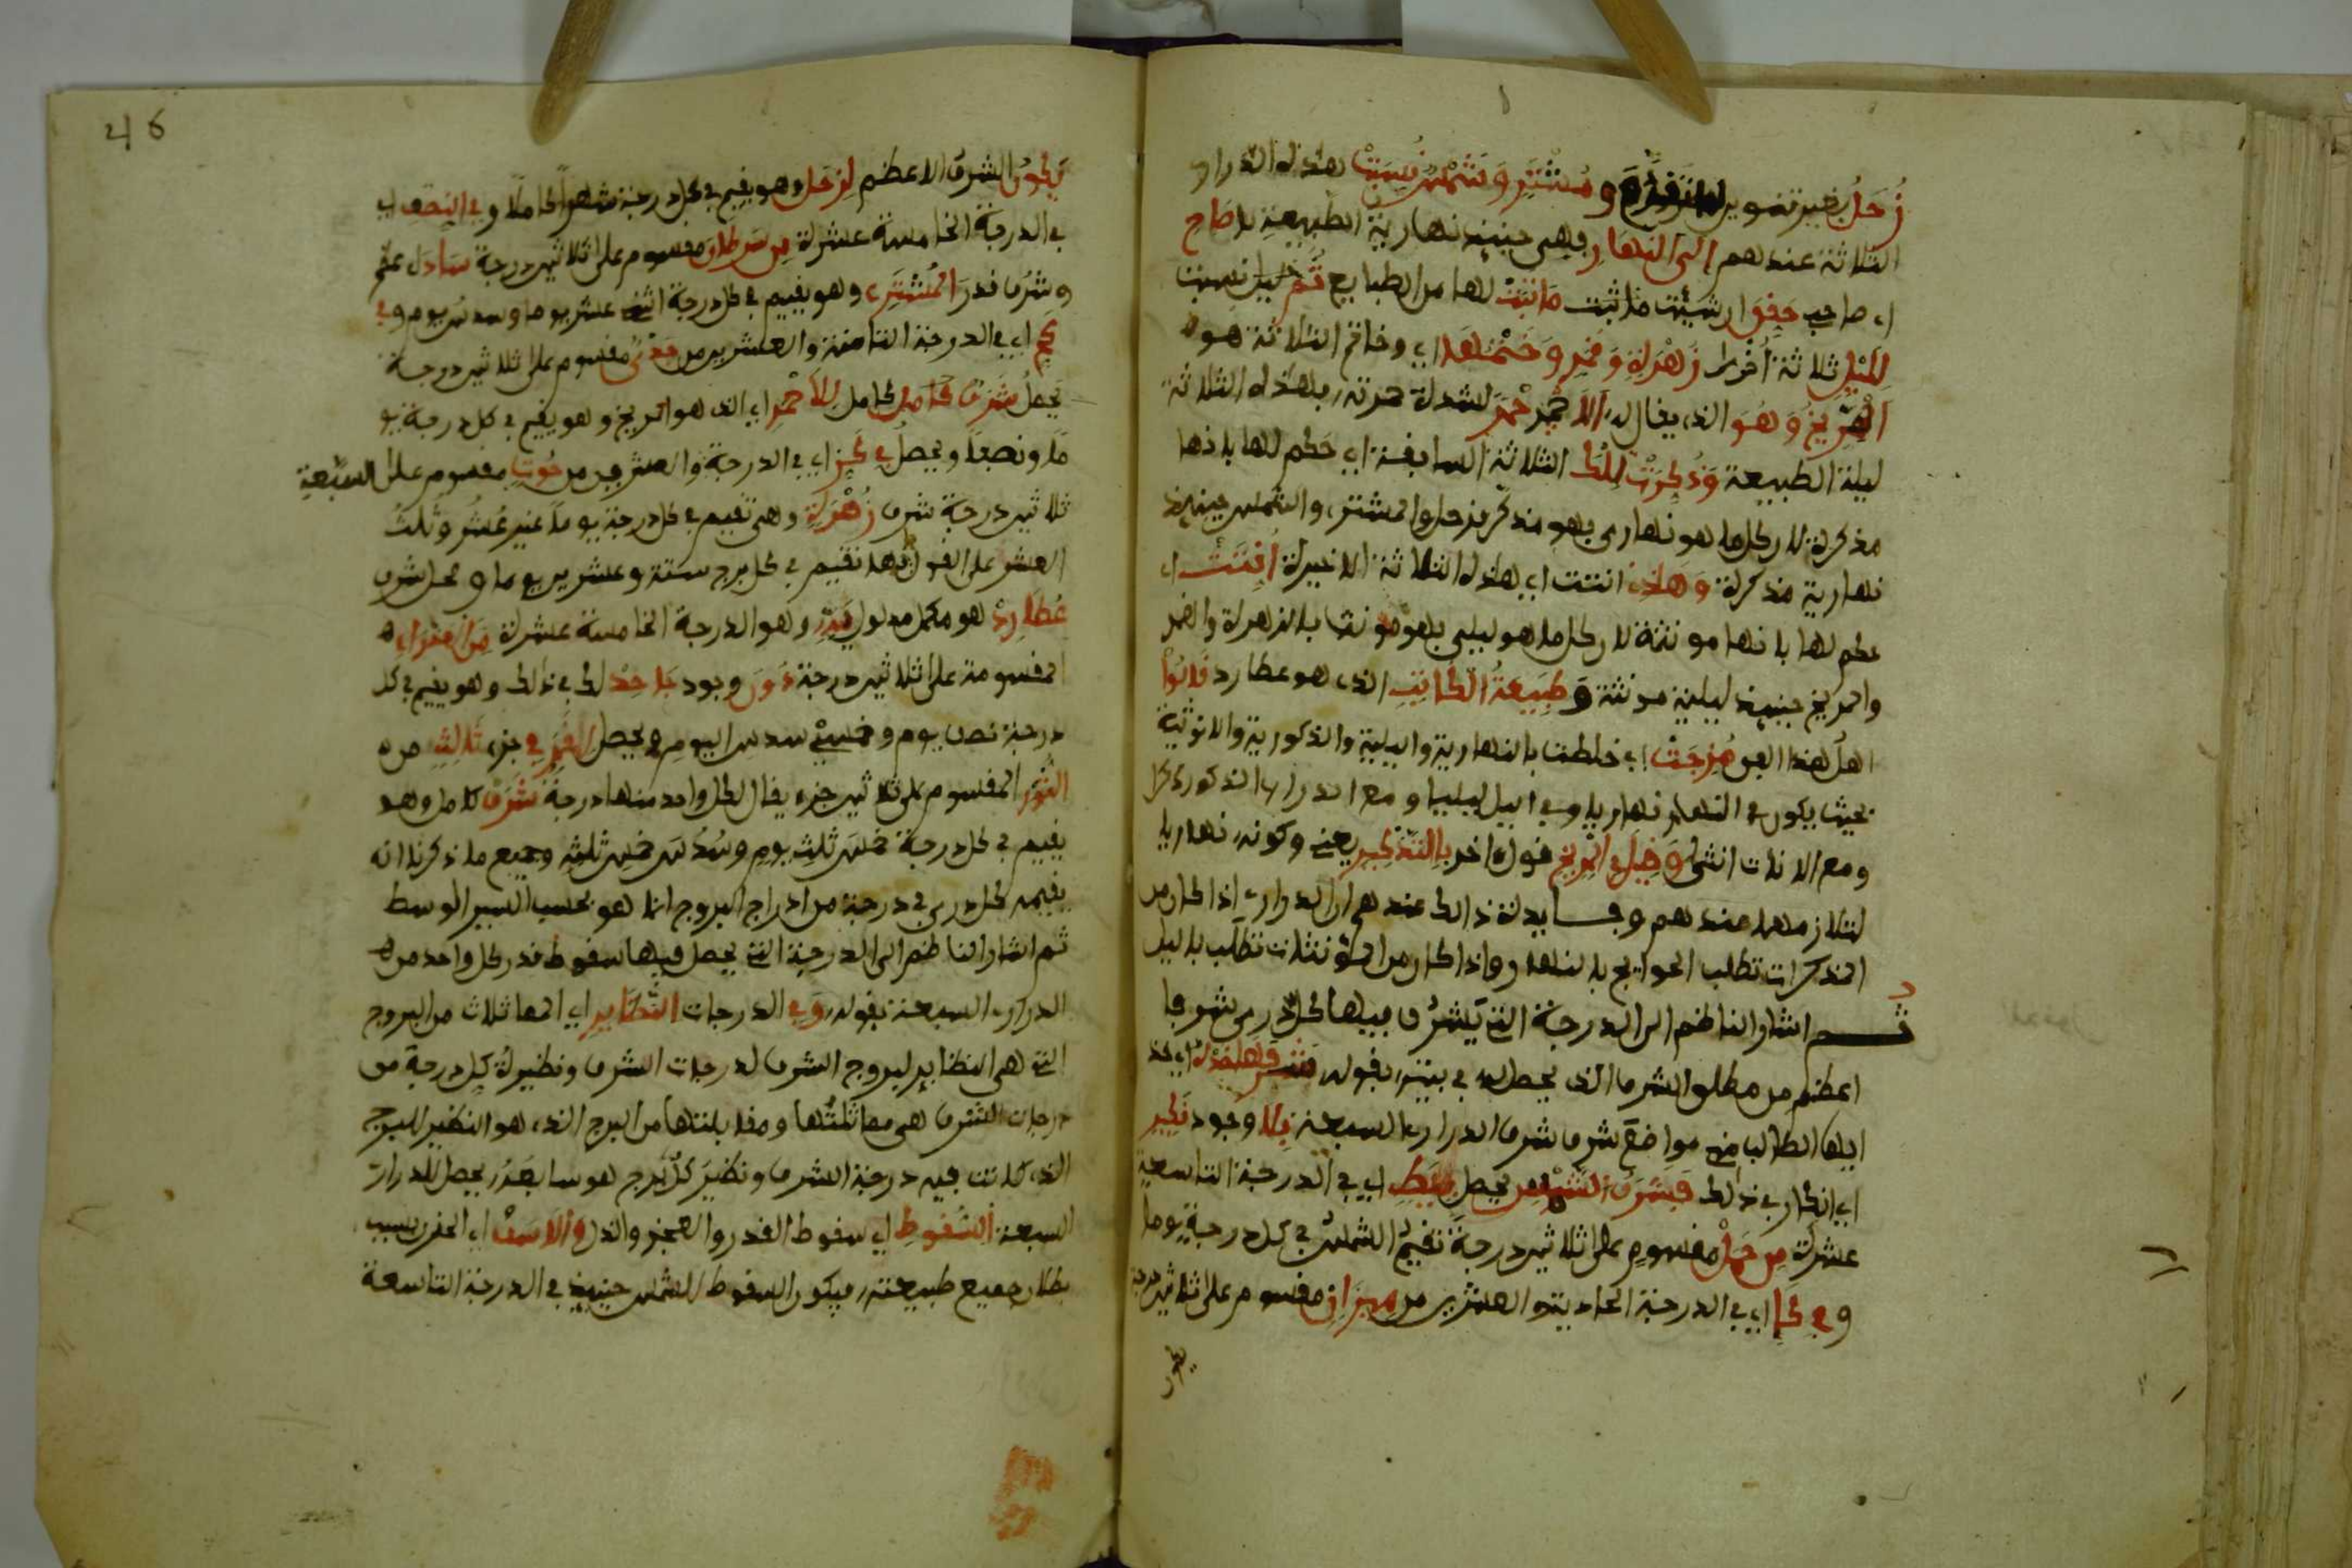 زُحَلُ بغير تنوير لما تقدم وَمُشْتَرٍ وَشَمْسٌ نُسِبَتْ هذه الدراري
الثلاثة عندهم إلى النهار فهي حينئذ نهارية الطبيعة يا صاح
اي صاحب حقق ان شيئت ما ثبت مَا ثبتْ لها من الطبايع ثُمَّ نسبت
لِلَّيْلِ ثلاثة أُخْرى زُهْرَةٍ وَقَمَرٍ وَخَتْمُهَا اي وخاتم الثلاثة هو
المِرِّيخُ وَهُوَ الذي يقال له الأَحْمَر لشدة حمرته فهذه الثلاثة
ليلية الطبيعة وَذُكِّرَتْ تِلْكَ الثلاثة السابقة اي حكم لها بانها
مذكرة لان كل ما هو نهاري فهو مذكر فزحل والمشتري والشمس حينئذ
نهارية مذكرة وَهَذِهِ انثت اي هذه الثلاثة الاخيرة أُنِّثَتْ اي
حكم لها بانها مونثة لان كل ما هو ليلي فهو مونث فالزهرة والقمر
والمريخ حينئذ ليلية مونثة وَطَبِيعَةُ الكَاتِبِ الذي هو عطارد قَالُوا
اهل هذا الفن مُزِجَتْ اي خلطت بالنهارية والليلية والذكورية والانوثية
بحيث يكون في النهار نهاريا وفي اليل ليليا ومع الدراري الذكور ذكر
ومع الاناث انثى وَقِيلَ في المِرِّيخِ قول اخر بِالتَّذْكِيرِ يعني وكونه نهاريا
لتلازمهما عندهم وفايدة ذالك عندهم ان الدراري اذا كان من
المذكرات تطلب الحوايج بالنهار واذا كان من المونثات تطلب باليل
ثم اشار الناظم الى الدرجة التي يَشْرُف فيها كل دري شرفا
اعظم من مطلق الشرف الذي يحصل له في بيته بقوله اي خذ
ايها الطالب مني مواضع شرف شرف الدراري السبعة بِلَا وجود نَكِير
اي انكار في ذالك فَشَرَفُ الشَّمْسِ يحصل بِيَطٍ اي في الدرجة التاسعة
عشرة مِن حَمَلْ مقسوم على ثلاثين درجة تقيمُ الشمس في كل درجة يوما
وفي كَا اي في الدرجة الحادية والعشرين من مِيزَانٍ مقسوم على ثلاثين درجة
46
يَكُونُ الشرف الاعظم لِزُحَل وهو يقيم في كل درجة شهرا كاملا وفي النصف اي
في الدرجة الخامسة عشرة مِن سَرَطَان مقسوم على ثلاثين درجة
وشرف قدرَ المُشْتَرِي وهو يقيم في كل درجة اثني عشر يوما وسدس يوم وفي
كَحٍ اي في الدرجة الثامنة والعشرين من جَدْيٍ مقسوم على ثلاثين درجة
يحصلُ شَرَف كامل لِلأَحْمَرِ اي الذي هو المريخ وهو يقيم في كل درجة يو
مًا ونصفا ويحصلُ فِي كَزٍ اي في الدرجة السَّابِعَةِ والعشرين من حُوتٍ مقسوم على
ثلاثين درجة شرف زُهْرَةٍ وهي تقيم في كل درجة يوما غير عُشُرٍ وثُلُث
العشر على القول بانها تقيم في كل برج ستة وعشرين يوما ومحل شرف
عُطَارِدْ هو مكمل مدلول وهو الدرجة الخامسة عشرة مِنَ العَذْرَاءِ
المقسومة على ثلاثين درجة دُونَ وجود جَاحِدْ لك في ذالك وهو يقيم في كل
درجة نصف يوم وخُمُسَيْ سدس اليوم ويحصل لِلقَمَر فِي جزء ثَالِثٍ من
الثَّوْرِ المقسوم على ثلاثين جزء يقال لكل واحد منها درجة شَرَف كامل وهو
يقيم في كل درجة خمس ثلث يوم وسُدُس خمس ثلثه وجميع ما ذكرنا انه
يقيمه كل دري في درجة من ادراج البروج انما هو بحسب السير الوسط
ثم اشار الناظم الى الدرجة التي يحصل فيها سقوط قدر كل واحد من
الدراري السبعة بقوله وَفِي الدرجات النَّظَاير اي المماثلات من البروج
التي هي النظاير لبروج الشرف لدرجات الشرف ونظيرة كل درجة من
درجات الشرف هي مماثلتُها ومقابلتها من البرج الذي هو النظير للبرج
الذي كانت فيه درجة الشرف ونظيرَ كل برج هو سابعه يحصل للدراري
السبعة السُّقُوطِ اي سقوط القدر والعجز والذل وَالأَسَفْ اي الحزن بسبب
بطلان جميع طبيعته فيكون السقوط للشمس حينئذ في الدرجة التاسعة